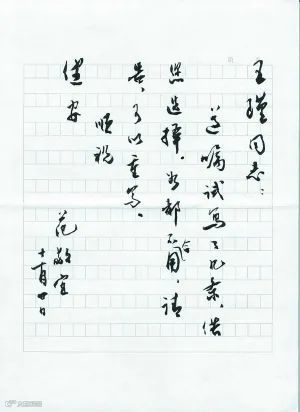 王瑾同志:
遵嘱试写了几条，供
您选择。如都不合用，请
告，可以重写。
顺祝
健安
范敬宜
十一月四日